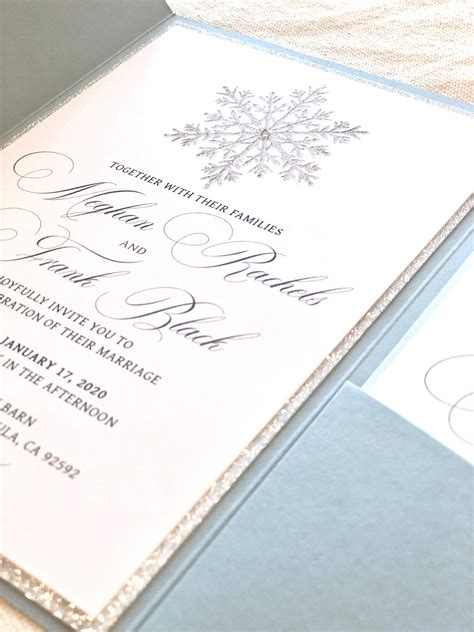 TOGETHER WITH THEIR FAMILIES
Meghan Rachels
AND
Frank Black
JOYFULLY INVITE YOU TO
BRATION OF THEIR MARRIAGE
JANUARY 17, 2020
IN THE AFTERNOON
BARN
ULA, CA 92592